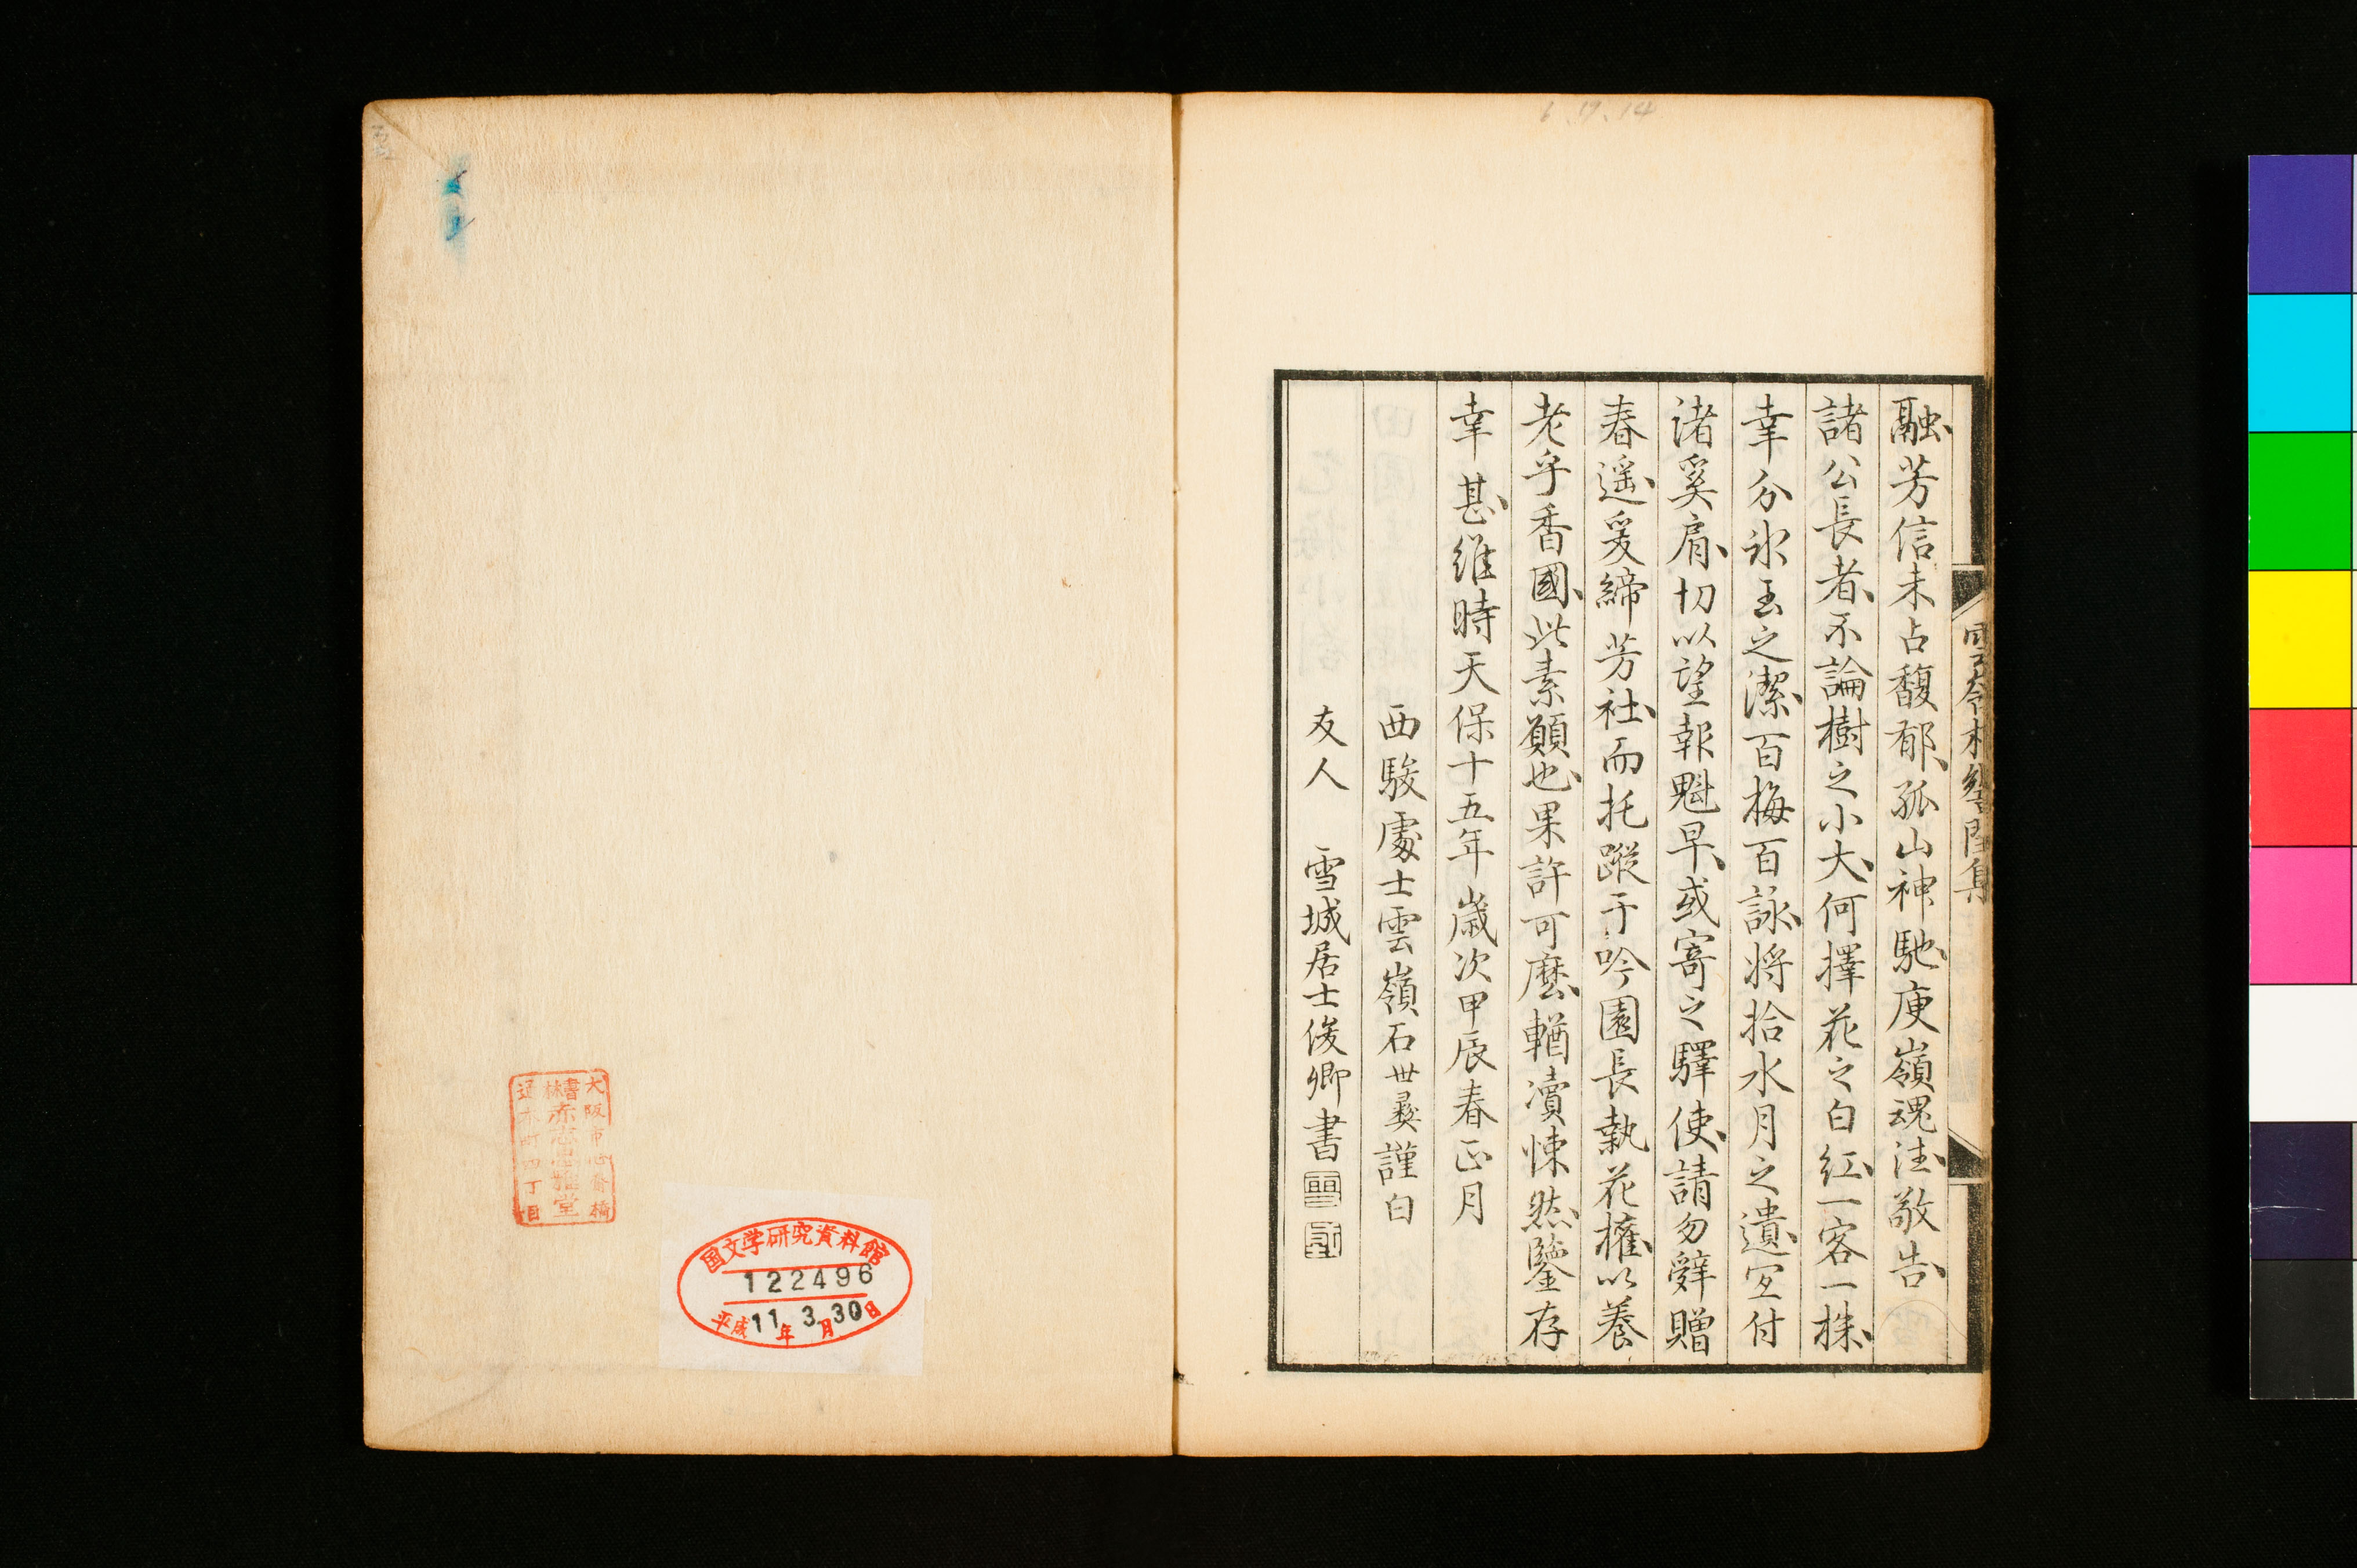 6.19.14
融芳信未占馥郁孤山神馳庾嶺魂注敬告
諸公長者不論樹之小大何擇花之白紅一客一株
幸分氷玉之潔百梅百詠將拾水月之遺宜付
諸奚肩切以望報魁早或寄之驛使請勿辭贈
春遥爰締芳社而托蹤于吟園長執花權以養
老乎香國此素願也果許可麽輶瀆悚然鑒存
幸甚維時天保十五年歲次甲辰春正月
西駿處士雲嶺石世彜謹白
友人 雪城居士俊卿書
大阪市心齋橋
書林 赤志忠雅堂
通本町四丁目
国文学研究資料館
122496
平成11年3月30日